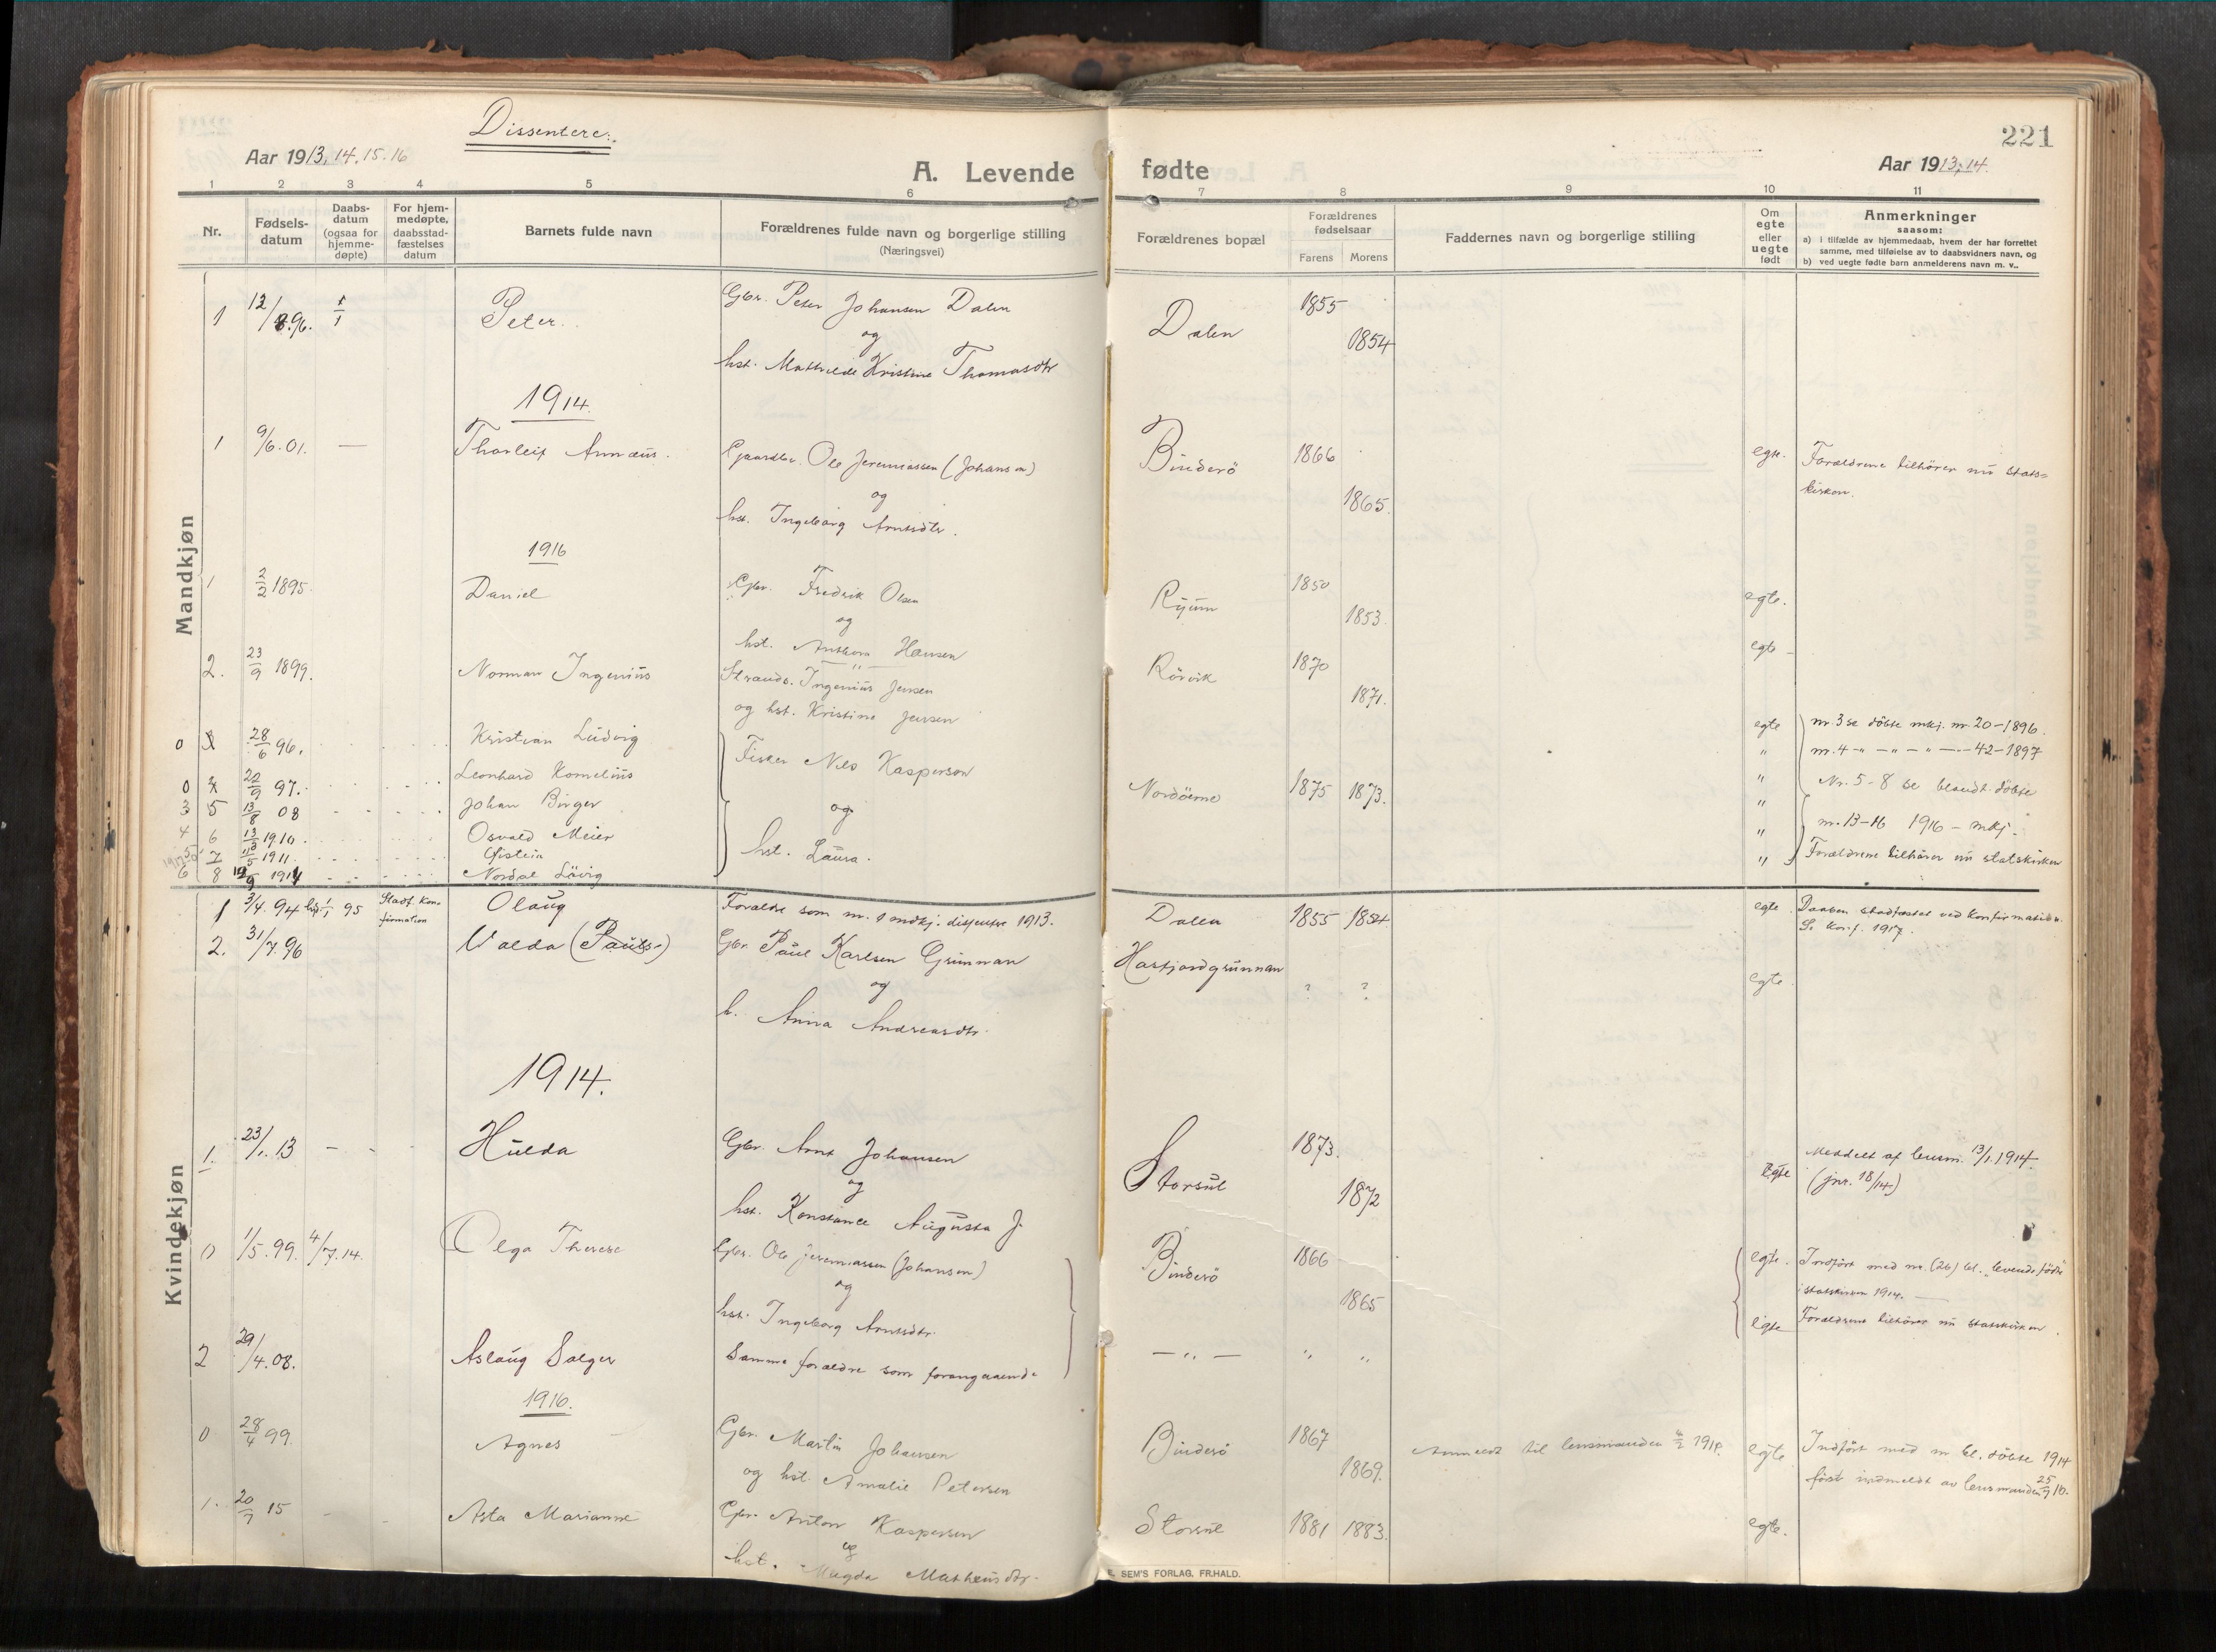 Dissentere:
Aar 1913, 14. 15. 16
A. Levende fødte
Aar 1913, 14.
221
1 2 3 4 5 6 7 8 9 10 11
Nr.
Fødsels-datum
Daabs-datum (ogsaa for hjemme-døpte)
For hjem-medøpte, daabsstad-fæstelses datum
Barnets fulde navn
Forældrenes fulde navn og borgerlige stilling
(Næringsvei)
Forældrenes bopæl
Forældrenes fødselsaar
Farens Morens
Faddernes navn og borgerlige stilling
Om egte eller uegte født
Anmerkninger
saasom:
a) i tilfælde av hjemmedaab, hvem der har forrettet samme, med tilføielse av to daabsvidners navn, og
b) ved uegte fødte barn anmelderens navn m. v..
Mandkjøn
1 12/8.96. Peter. Gbr. Peter Johansen Dalen Dalen 1855
og 1854
hst. Mathilde Kristine Thomasdtr
1914.
1 9/6.01. — Thorleif Annæus. Gaardbr. Ole Jeremiassen (Johansen) Binderö 1866 egte. Forældrene tilhörer nu stats=
og 1865. kirken.
hst. Ingeborg Arntsdtr.
1916
1 2/2 1895. Daniel Gbr. Fredrik Olsen Ryum 1850 egte.
og 1853.
hst. Anthora Hansen
2. 23/9 1899. Norman Ingenius Strands. Ingenius Jensen Rörvik 1870 egte
og hst. Kristine Jensen 1871.
0 28/6 96. Kristian Ludvig egte nr. 3 se döbte mkj. nr 20-1896.
0 22/9 97. Leonhard Kornelius Fisker Nils Kaspersen " nr. 4 - " - " - " - 42-1897
3 5 13/8 08 Johan Birger og Nordöerne 1875 1873. " Nr. 5-8 se blandt döbte
4 6 13/ 1910. Osvald Meier " nr. 13-16 1916 - mkj.
7 /5 1911. Øistein hst. Laura. " Forældrene tilhörer nu statskirken
6 8 /9 1914 Nordal Lövig "
Kvindekjøn
1 3/4.94 1/1 95 Stadf. Kon-firmation Olaug Forældre som nr. 1 mdkj. dissentre 1913. Dalen 1855 1854 egte Daaben stadfæstet ved konfirmation.
S. Konf. 1917.
2. 31/7.96 Valda (Pauls) Gbr. Paul Karlsen Grunnan Harfjordgrunnan ? ? egte.
og
h. Anna Andreasdtr.
1914.
1. 23/1.13 - - - Hulda Gbr. Arnt Johansen Storsul 1873. egte Meddelt af lensm. 13/1.1914.
og 1872 (jnr. 18/14)
hst. Konstance Augusta J.
0 1/5.99. 4/7.14. Olga Therese Gbr. Ole Jeremiassen (Johansen) Binderö 1866 egte. Indfört med nr. (26) bl. "levende födte"
og 1865 i statskirken 1914.
hst. Ingeborg Arntsdtr. Forældrene tilhörer nu statskirken.
2 29/4.08. Aslaug Solger Samme forældre som foregaaende — " — " " egte
1916.
0 28/4 99. Agnes Gbr. Martin Johansen Binderö 1867 Anmeldt til lensmanden egte Indfört med nr bl. döbte 1914
og hst. Amalie Petersen 1869. först indmeldt av lensmanden 25/9 16.
1. 20/7 15 - - Asta Marianne Gbr. Anton Kaspersen Storsul 1881 1883. egte.
og
hst. Magda Matheusdtr.
E. SEM'S FORLAG, FR.HALD.